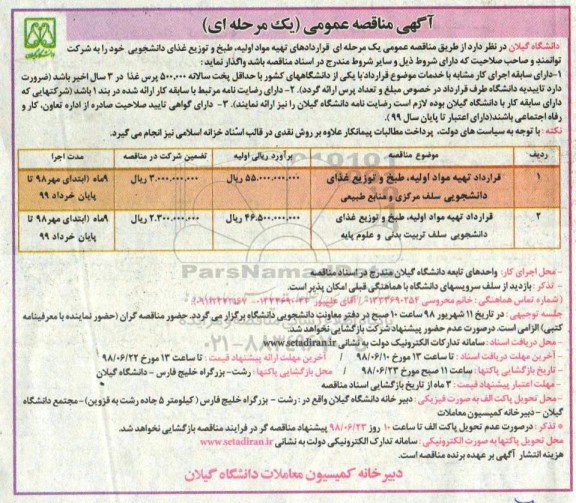 آگهی مناقصه عمومی (یک مرحله ای)
دانشگاه گیلان در نظر دارد از طریق مناقصه عمومی یک مرحله ای قراردادهای تهیه مواد اولیه، طبخ و توزیع غذای دانشجویی خود را به شرکت
توانمند و صاحب صلاحیت که دارای شروط ذیل و سایر شروط مندرج در اسناد مناقصه باشد واگذار نماید:
۱-دارای سابقه اجرای کار مشابه با خدمات موضوع قرارداد با یکی از دانشگاههای کشور با حداقل پخت سالانه ۵۰۰.۰۰۰ پرس غذا در ۳ سال اخیر باشد (ضرورت
دارد تاییدیه دانشگاه طرف قرارداد در خصوص مبلغ و تعداد پرس ارائه گردد). ۲- دارای رضایت نامه مرتبط با سابقه کار ارائه شده در بند ۱ باشد (شرکتهایی که
دارای سابقه کار با دانشگاه گیلان بوده لازم است رضایت نامه دانشگاه گیلان را نیز ارائه نمایند). ۳- دارای گواهی تایید صلاحیت صادره از اداره تعاون، کار و
رفاه اجتماعی باشند(دارای اعتبار تا پایان سال ۹۹).
نکته : با توجه به سیاست های دولت، پرداخت مطالبات پیمانکار علاوه بر روش نقدی در قالب اسناد خزانه اسلامی نیز انجام می گیرد.
ردیف موضوع مناقصه برآورد ریالی اولیه تضمین شرکت در مناقصه مدت اجرا
۱ قرارداد تهیه مواد اولیه، طبخ و توزیع غذای دانشجویی سلف مرکزی و منابع طبیعی ۵۵.۰۰۰.۰۰۰.۰۰۰ ریال ۳.۰۰۰.۰۰۰.۰۰۰ ریال ۹ماه (ابتدای مهر ۹۸ تا پایان خرداد ۹۹
۲ قرارداد تهیه مواد اولیه، طبخ و توزیع غذای دانشجویی سلف تربیت بدنی و علوم پایه ۴۶.۵۰۰.۰۰۰.۰۰۰ ریال ۲.۳۰۰.۰۰۰.۰۰۰ ریال ۹ماه (ابتدای مهر ۹۸ تا پایان خرداد ۹۹
- محل اجرای کار: واحدهای تابعه دانشگاه گیلان مندرج در اسناد مناقصه
- تذکر : بازدید از سلف سرویسهای دانشگاه با هماهنگی قبلی امکان پذیر است.
( شماره تماس هماهنگی : خانم محروسی آقای علیپور
جلسه توجیهی : در تاریخ ۱۱ شهریور ۹۸ ساعت ۱۰ صبح در دفتر معاونت دانشجویی دانشگاه برگزار می گردد. حضور مناقصه گران (حضور نماینده با معرفینامه
کتبی) الزامی است. درصورت عدم حضور پیشنهاد شرکت بازگشایی نخواهد شد.
محل دریافت اسناد : سامانه تدارکات الکترونیکی دولت به نشانی www.setadiran.ir
آخرین مهلت دریافت اسناد : تا ساعت ۱۳ مورخ ۹۸/۰۶/۱۰ / آخرین مهلت ارائه پیشنهاد قیمت : تا ساعت ۱۳ مورخ ۹۸/۰۶/۲۲
- تاریخ بازگشایی پاکتها : ساعت ۱۱ صبح مورخ ۹۸/۰۶/۲۳ / محل بازگشایی پاکتها : رشت- بزرگراه خلیج فارس - دانشگاه گیلان
- مهلت اعتبار پیشنهاد قیمت : ۳ ماه از تاریخ بازگشایی اسناد مناقصه
- محل تحویل پاکت الف به صورت فیزیکی : دبیرخانه دانشگاه گیلان واقع در : رشت - بزرگراه خلیج فارس (کیلومتر ۵ جاده رشت به قزوین)- مجتمع دانشگاه
گیلان - دبیرخانه کمیسیون معاملات
* تذکر : درصورت عدم تحویل پاکت الف تا ساعت ۱۰ روز ۹۸/۰۶/۲۳ پیشنهاد مناقصه گر در فرایند مناقصه بازگشایی نخواهد شد.
محل تحویل پاکتها به صورت الکترونیکی : سامانه تدارک الکترونیکی دولت به نشانی www.setadiran.ir
هزینه انتشار آگهی بر عهده برنده مناقصه است.
دبیرخانه کمیسیون معاملات دانشگاه گیلان